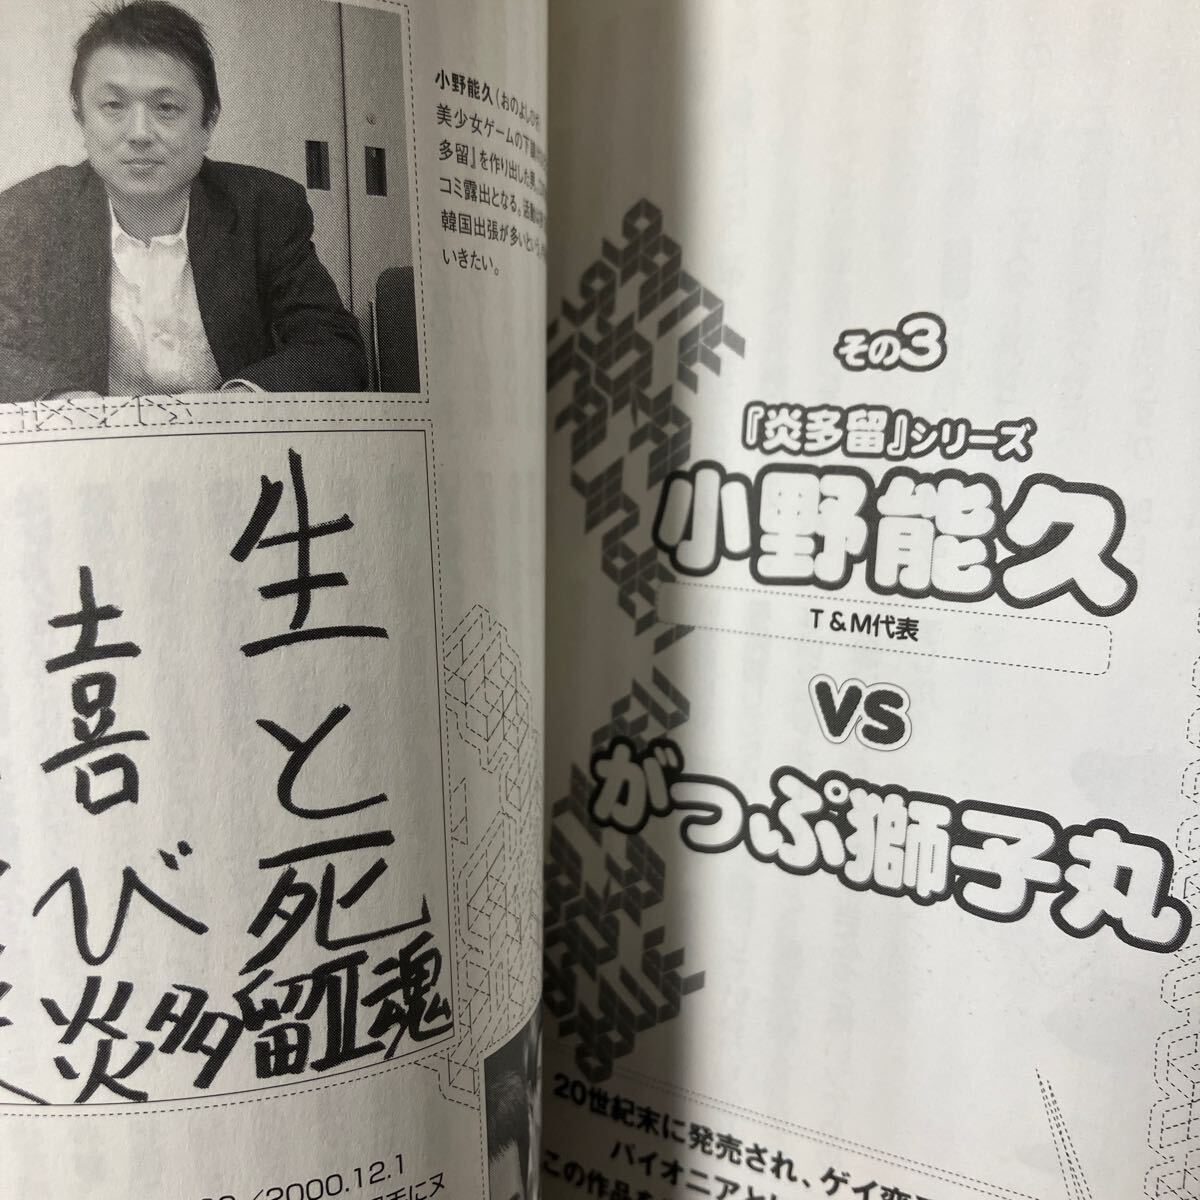 小野能久(おのよしひさ)
美少女ゲームの下請
多留』を作り出した男。
コミ露出となる。活動
韓国出張が多いという。
いきたい。
生と死
喜び
炎多留Ⅱ魂
/2000.12.1
その3
『炎多留』シリーズ
小野能久
T&M代表
VS
がっぷ獅子丸
20世紀末に発売され、ゲイ恋
パイオニアとし
この作品を